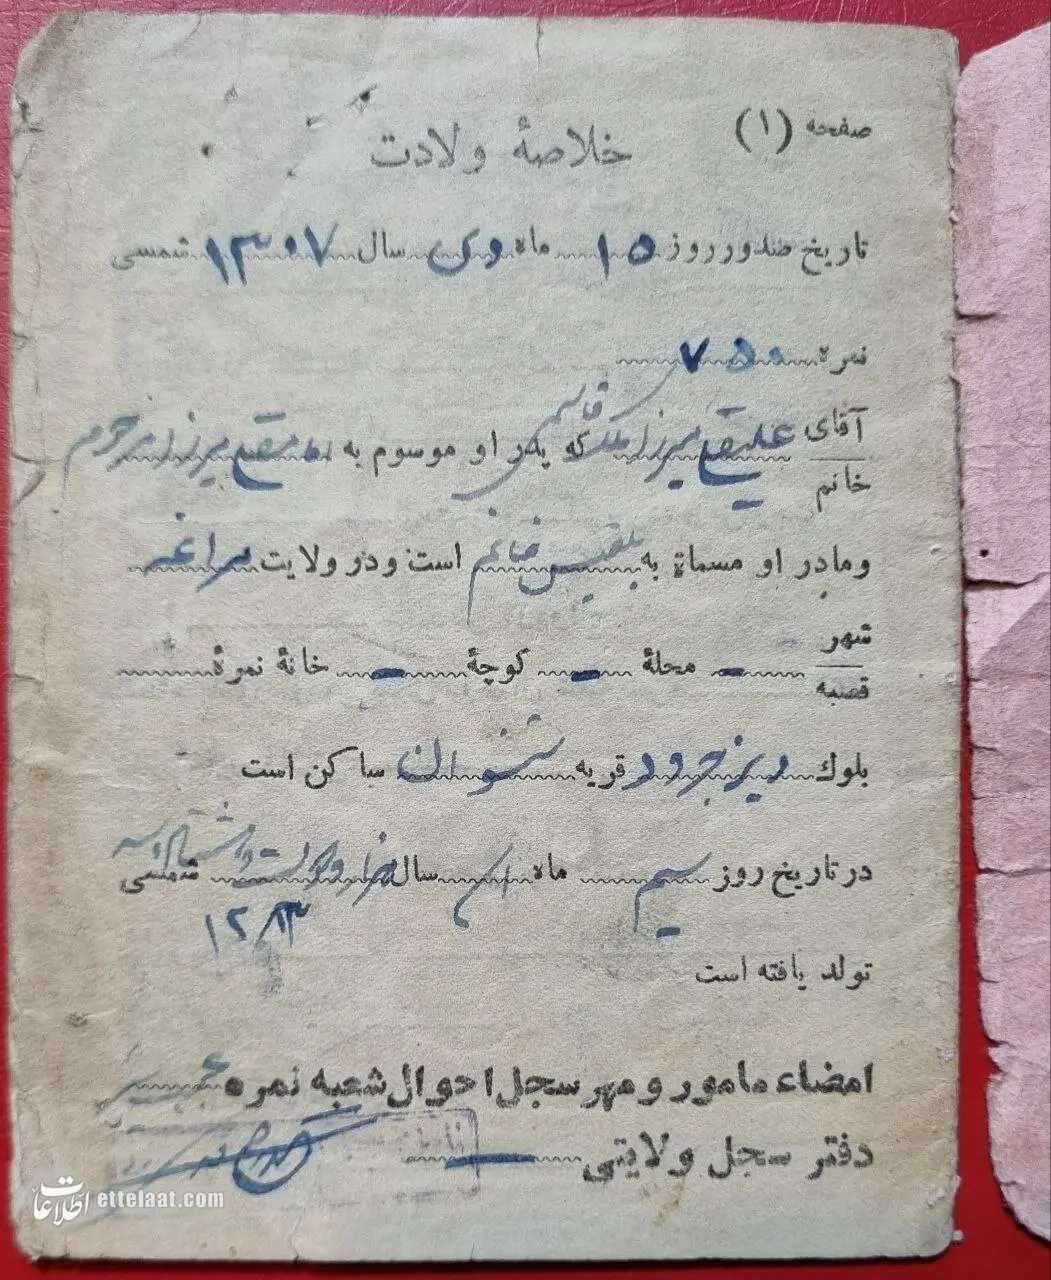 صفحه (۱)
خلاصهٔ ولادت
تاریخ صدور روز ۱۵ ماه دی سال ۱۳۰۷ شمسی
نمره ۷۵۰
آقای
خانم
علینقی میرزا ملک قاسمی که پدر او موسوم به امامقلی میرزا مرحوم
ومادر او مسماة به بلقیس خانم است و در ولایت مراغه
شهر
قصبه
محلهٔ — کوچهٔ — خانهٔ نمرهٔ
بلوك دیزجرود قریه ساکن است
در تاریخ روز ماه سال هزار و دویست و هشتاد و سه شمسی
۱۲۸۳
تولد یافته است
امضاء مامور و مهر سجل احوال شعبه نمره
دفتر سجل ولایتی —
اطلاعات ettelaat.com